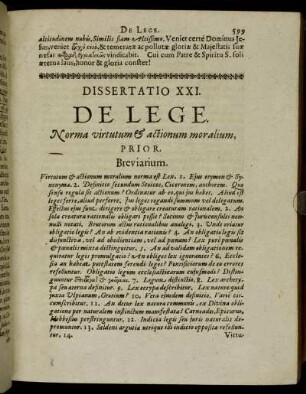 De Lege. 599
altitudinem nubis, Similis siam Altissimo. Veniet certè Dominus Je-
sus, veniet & temeratæ ac pollutæ gloriæ & Majestatis suæ
vindicabit. Cui cum Patre & Spiritu S. soli
æternùm sit laus, honor & gloria constet!
DISSERTATIO XXI.
DE LEGE.
Norma virtutum & actionum moralium,
PRIOR.
Breviarium.
Virtutum & actionum moralium norma est Lex. 1. Ejus etymon & Sy-
nonyma. 2. Definitio secundum Stoicos, Ciceronem, authorem. Quo
sensu regula sit actionum? Ordinatur ab eo, qui jus habet. Aliud est
leges ferre, aliud perferre. Jus legis ragandi summum vel delegatum.
Effectus ejus sunt, dirigere & obligare creaturam rationalem. 2. An
sola creatura rationalis obligari possit? Socinus & jurisconsulti non-
nulli notati. Brutorum actus rationalibus analogi. 3. Unde oriatur
obligatio legis? An ab evidentia rationis? 4. An obligatio legis sit
disjunctiva, vel ad obedientiam, vel ad pœnam? Lex purè pœnalis
& pœnalis mixta distinguuntur. 5. An ad validam obligationem re-
quiratur legis promulgatio? An & obliget lex ignorantes? 6. Eccle-
sia an habeat potestatem ferendi leges? Parisiorum de eo errores
refelluntur. Obligatio legum ecclesiasticarum cujusmodi? Distin-
guuntur & 7. Legum distinctio. 8. Lex archety-
pa seu æterna definitur. 9. Lex ectypa describitur. Lex naturæ quid
juxta Ulpianum, Grotium? 10. Vera ejusdem definitio. Varie cir-
cumscribitur. 11. An detur lex naturæ communis, ex Divina obli-
gatione per naturalem instinctum manifestata? Carneades, Epicurus,
Hobbesius perstringuntur. 12. Indicia legis seu juris naturalis de-
promuntur. 13. Seldeni argutiæ utrique isti indicio oppositæ refellun-
tur. 14. Virtu-